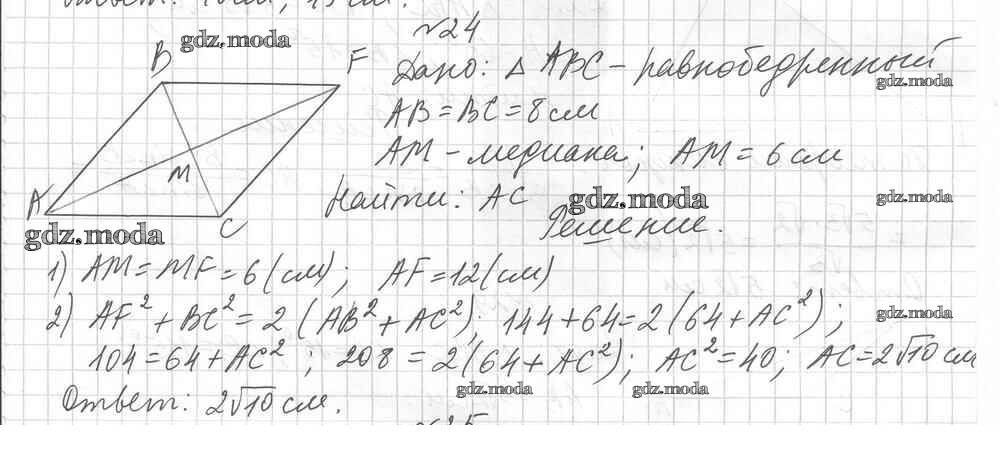 Ответ: 
№24
Дано: △ ABC – равнобедренный
AB = BC = 8 см
AM – медиана; AM = 6 см
Найти: AC
Решение.
B
F
M
A
C
1) AM = MF = 6 (см); AF = 12 (см)
2) AF² + BC² = 2 (AB² + AC²); 144 + 64 = 2 (64 + AC²);
104 = 64 + AC²; 208 = 2 (64 + AC²); AC² = 40; AC = 2√10 см
Ответ: 2√10 см.
№25
gdz.moda
gdz.moda
gdz.moda
gdz.moda
gdz.moda
gdz.moda
gdz.moda
gdz.moda